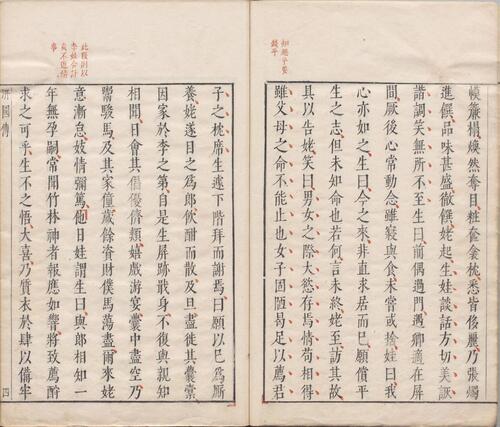 幙簾榻煥然奪目粧奩衾枕悉皆侈麗乃張燭
進饌品味甚盛徹饌姥起生娃談話方切美詼
諧調笑無所不至生曰前偶過門遇卿適在屏
間厥後心常動念雖寢與食未嘗或捨娃曰我
心亦如之生曰今之來非直求居而已願償平
生之志但未知命也若何言未終姥至訪其故
具以告姥笑曰男女之際大欲存焉情苟相得
雖父母之命不能止也女子固陋曷足以薦君
此段則以
李娃合計
不近情
事
子之枕席生遂下階拜而謝焉曰願以已爲厮
養姥遂目之爲郎飲酣而散及旦盡徙其囊橐
因家於李之第自是生屏跡戢身不復與親知
相聞日會其倡優儕類嬉戲游宴囊中盡空乃
鬻駿馬及其家僮歲餘資財僕馬蕩盡爾來姥
意漸怠娃情彌篤他日娃謂生曰與郎相知一
年無孕嗣常聞竹林神者報應如響將致薦酹
求之可乎生不之悟大喜乃質衣於肆以備牢
汧國傳
四